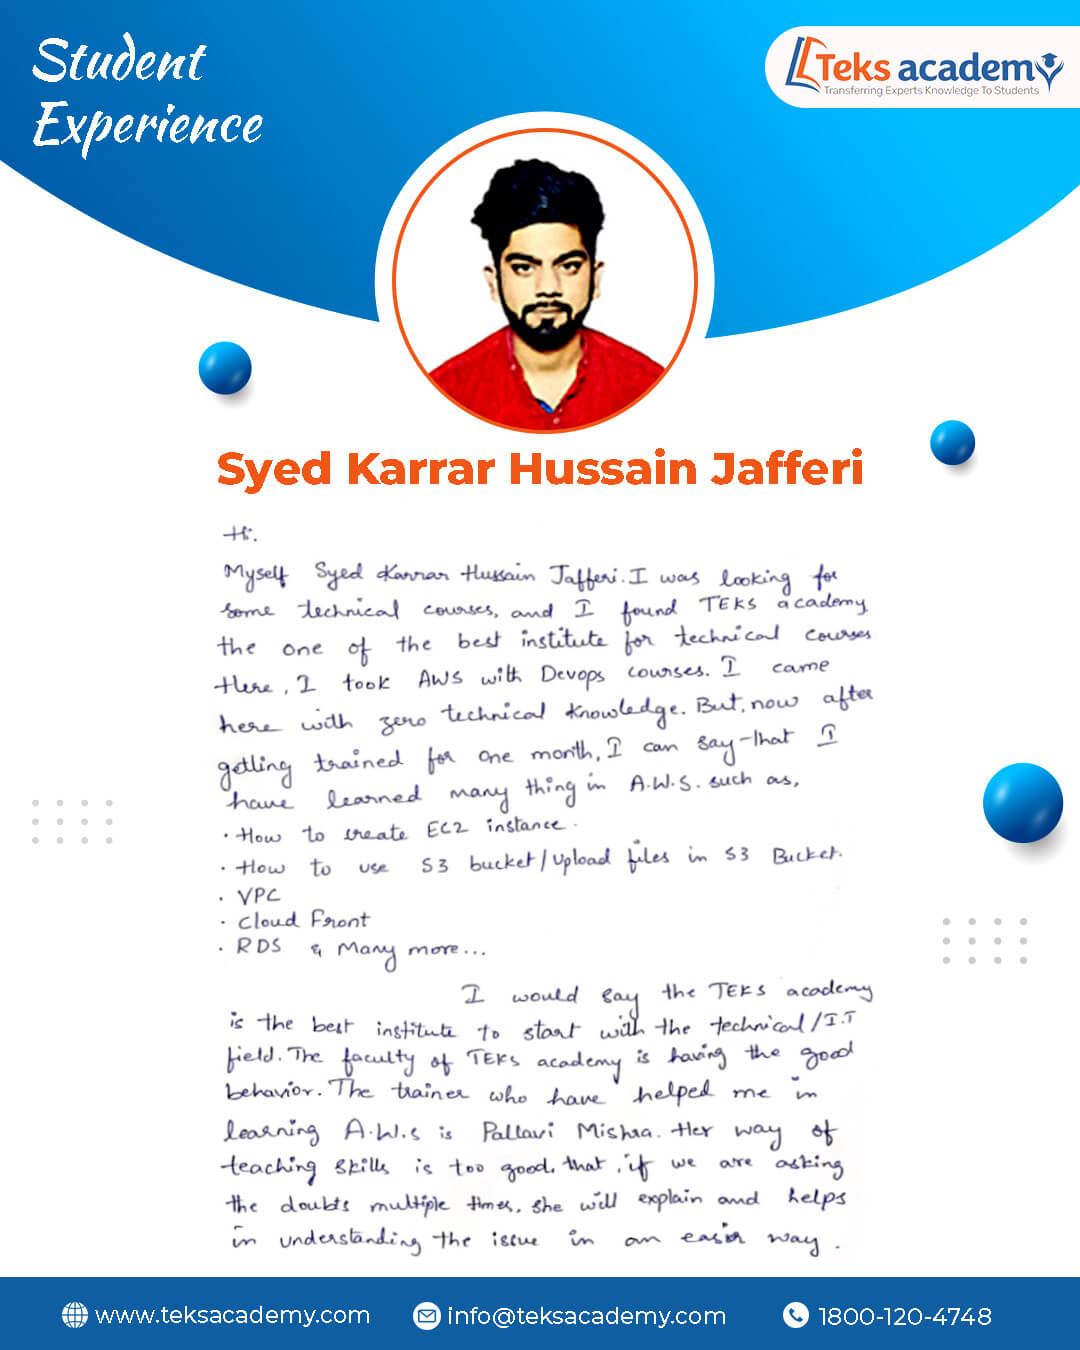 Student
Experience
Teks academy
Transferring Experts Knowledge To Students
Syed Karrar Hussain Jafferi
Hi.
Myself Syed Karrar Hussain Jafferi. I was looking for
some technical courses, and I found TEKS academy
the one of the best institute for technical courses
Here, I took AWS with Devops courses. I came
here with zero technical knowledge. But, now after
getting trained for one month, I can say that I
have learned many thing in A.W.S. such as,
• How to create EC2 instance.
• How to use S3 bucket/Upload files in S3 Bucket.
• VPC
• Cloud Front
• RDS & Many more...
I would say the TEKS academy
is the best institute to start with the technical/I.T
field. The faculty of TEKS academy is having the good
behavior. The trainer who have helped me in
learning A.W.S is Pallavi Mishra. Her way of
teaching skills is too good. that, if we are asking
the doubts multiple times, she will explain and helps
in understanding the issue in an easier way.
www.teksacademy.com
info@teksacademy.com
1800-120-4748